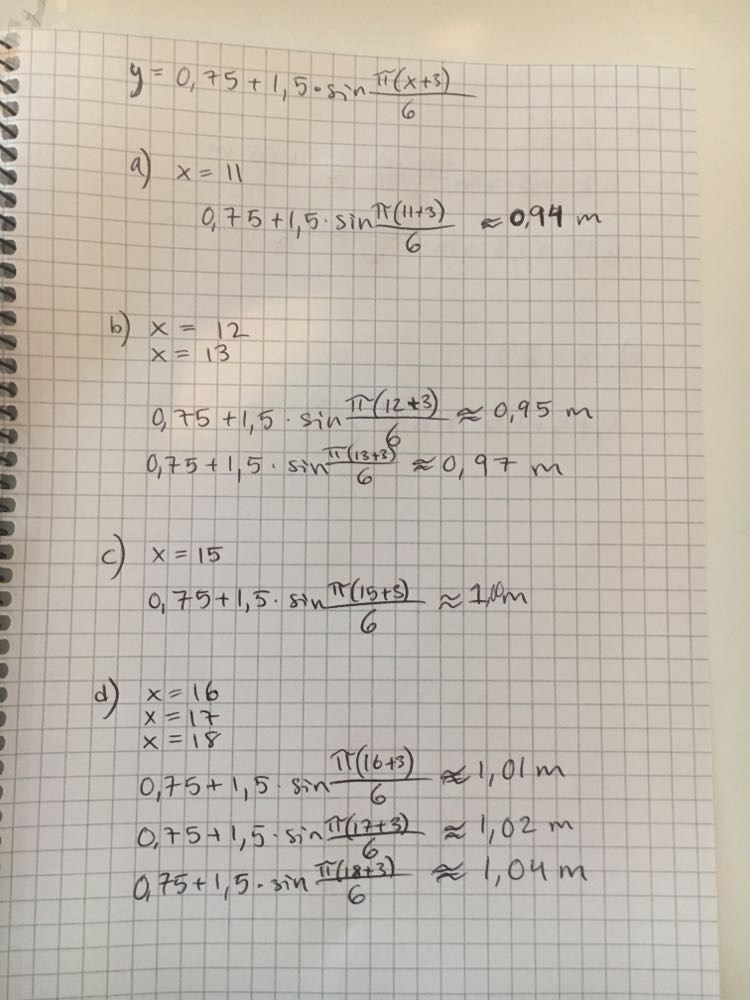 y = 0,75 + 1,5 · sin π(x+3)/6
a) x = 11
0,75 + 1,5 · sin π(11+3)/6 ≈ 0,94 m
b) x = 12
x = 13
0,75 + 1,5 · sin π(12+3)/6 ≈ 0,95 m
0,75 + 1,5 · sin π(13+3)/6 ≈ 0,97 m
c) x = 15
0,75 + 1,5 · sin π(15+3)/6 ≈ 1,00 m
d) x = 16
x = 17
x = 18
0,75 + 1,5 · sin π(16+3)/6 ≈ 1,01 m
0,75 + 1,5 · sin π(17+3)/6 ≈ 1,02 m
0,75 + 1,5 · sin π(18+3)/6 ≈ 1,04 m